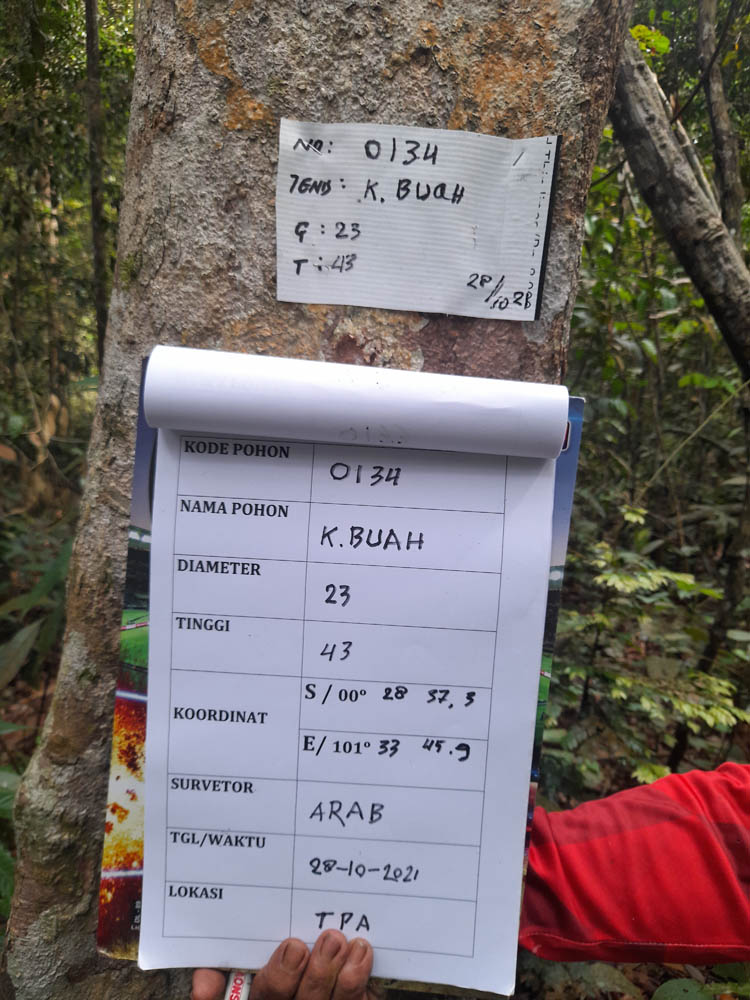 No: 0134
JENIS: K. BUAH
G: 23
T: 43
28/10 2B
KODE POHON 0134
NAMA POHON K.BUAH
DIAMETER 23
TINGGI 43
KOORDINAT
S / 00° 28 37,3
E/ 101° 33 45.9
SURVETOR ARAB
TGL/WAKTU 28-10-2021
LOKASI TPA